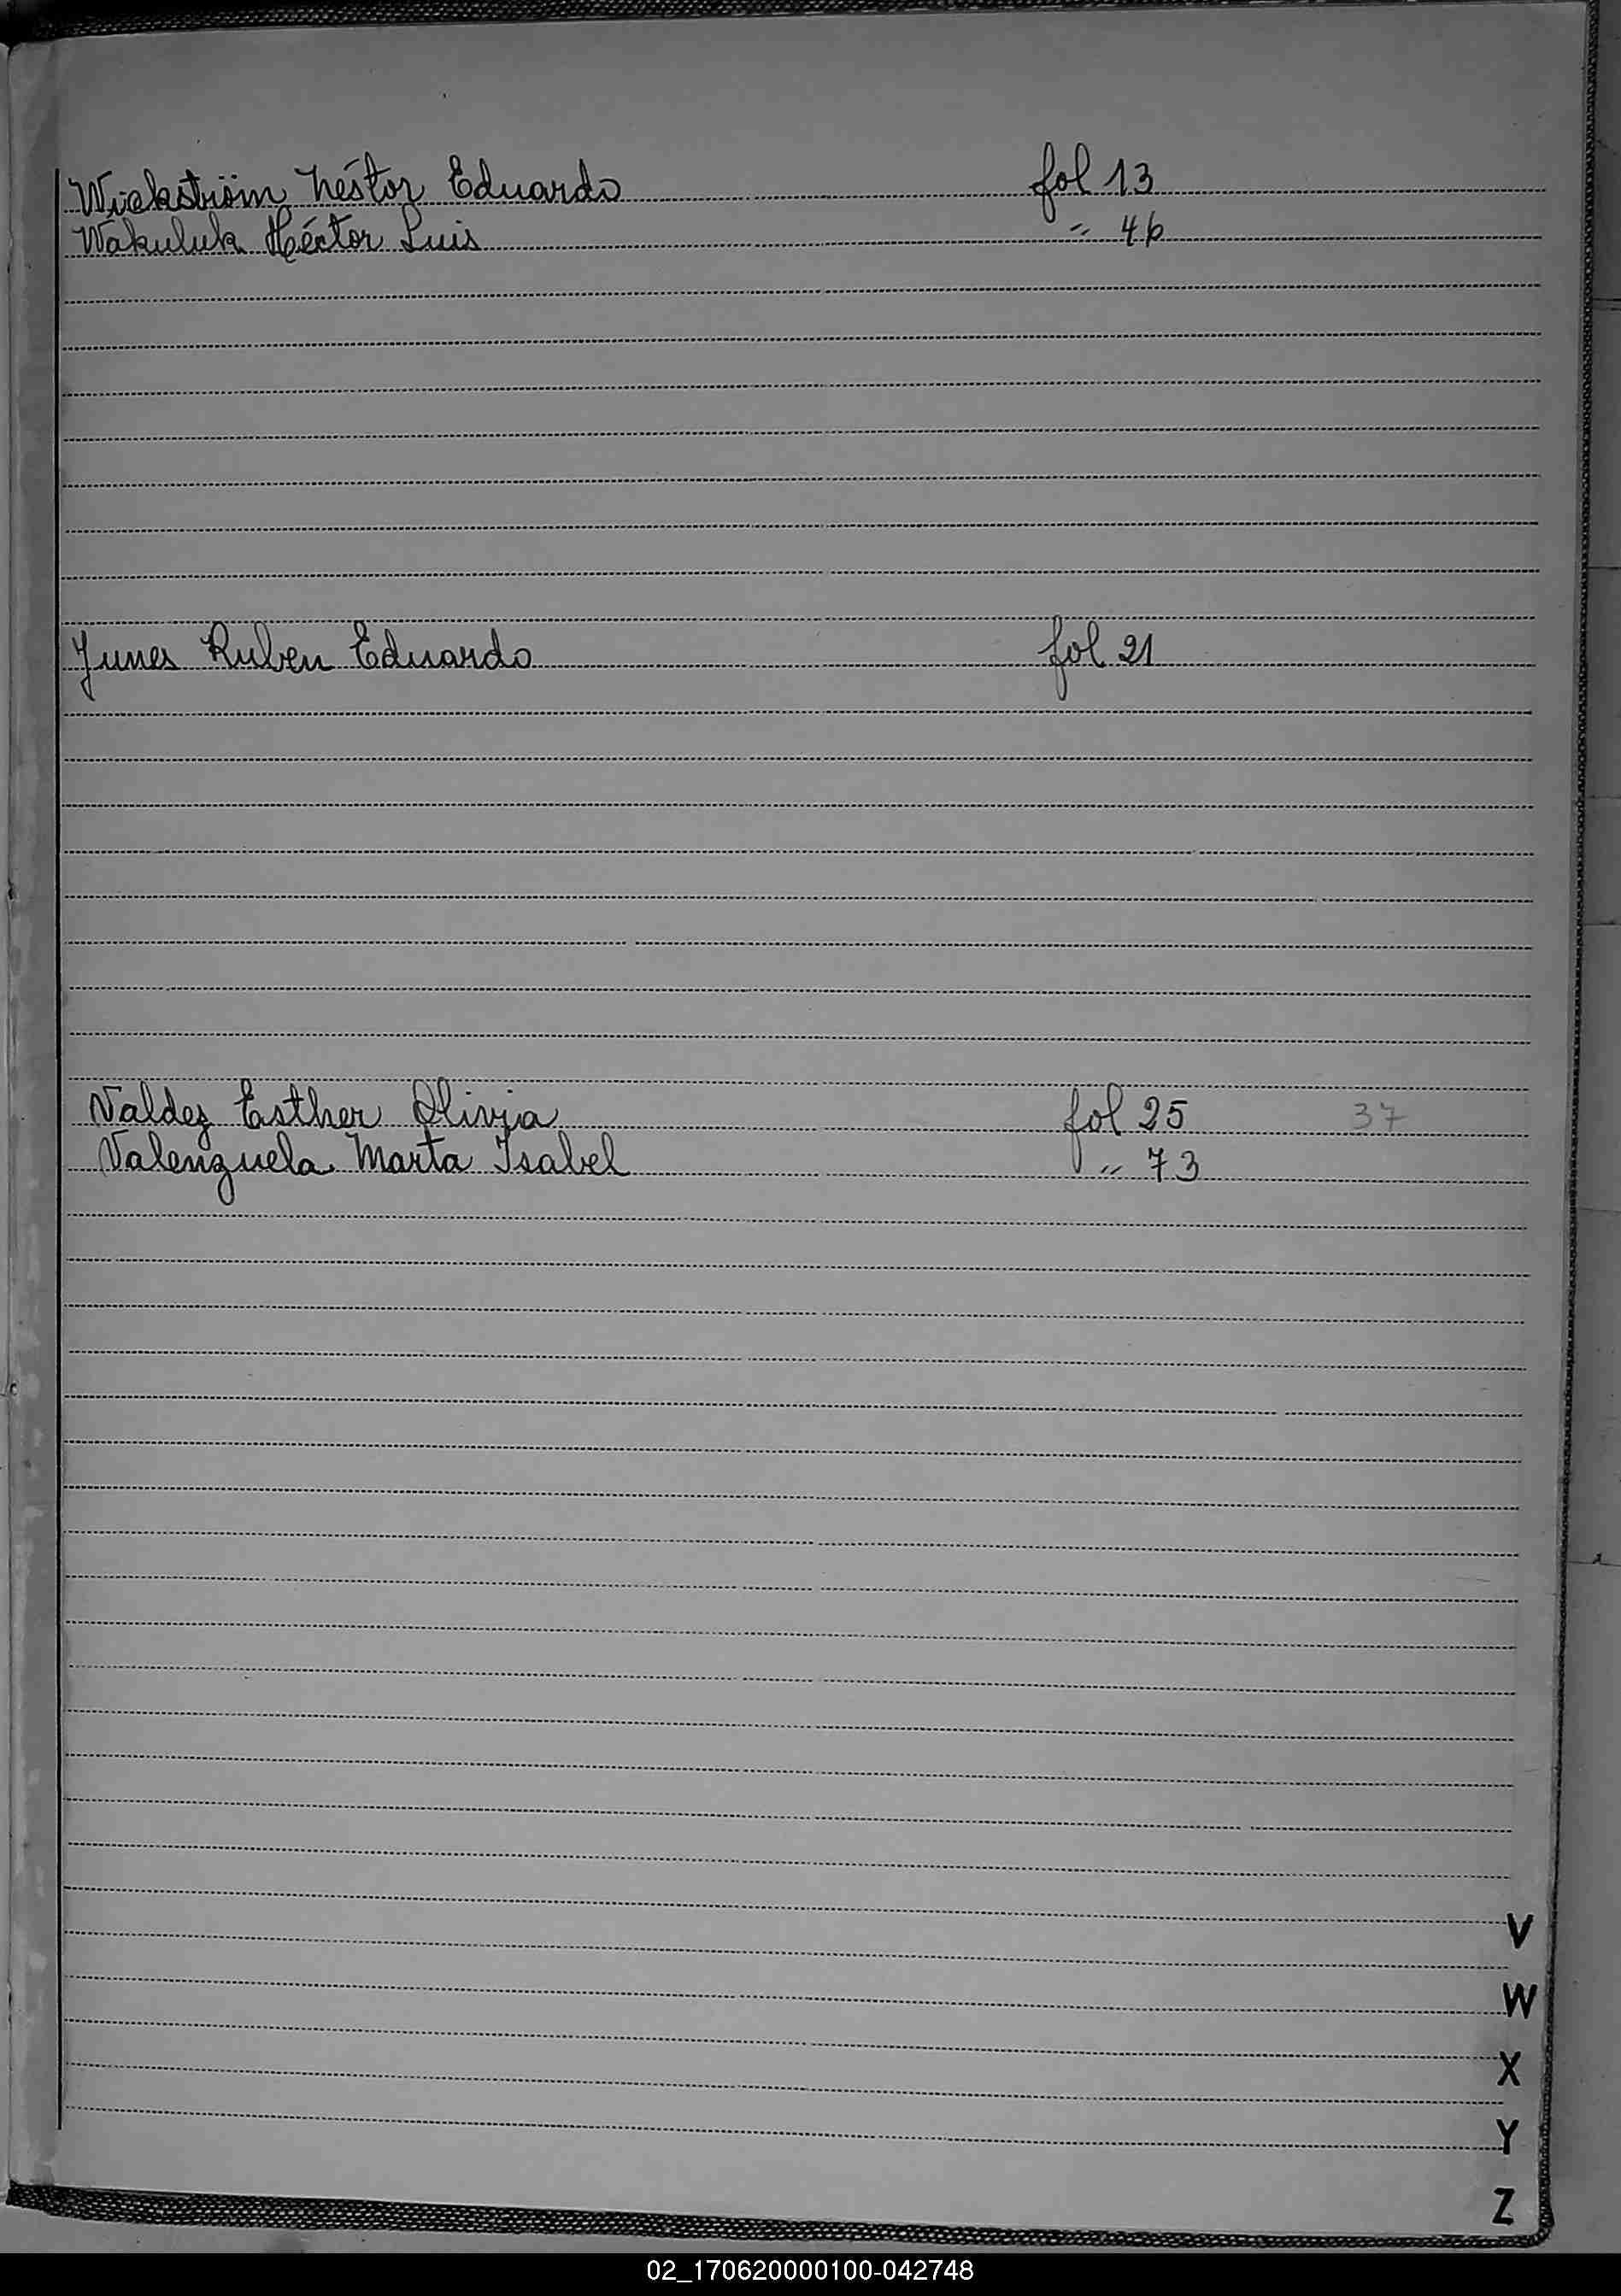 Wickström Néstor Eduardo fol 13
Wakuluk Héctor Luis " 46
Yunes Ruben Eduardo fol 21
Valdez Esther Olivia fol 25 37
Valenzuela Marta Isabel " 73
V
W
X
Y
Z
02_170620000100-042748